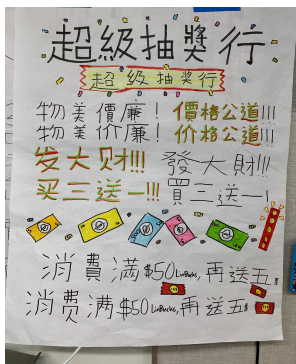 超級抽獎行
超級抽獎行
物美價廉! 價格公道!!!
物美价廉! 价格公道!!!
发大财!!! 發大財!!!
买三送一!!! 買三送一!
消費滿$50LinBucks,再送五
消费满$50LinBucks,再送五